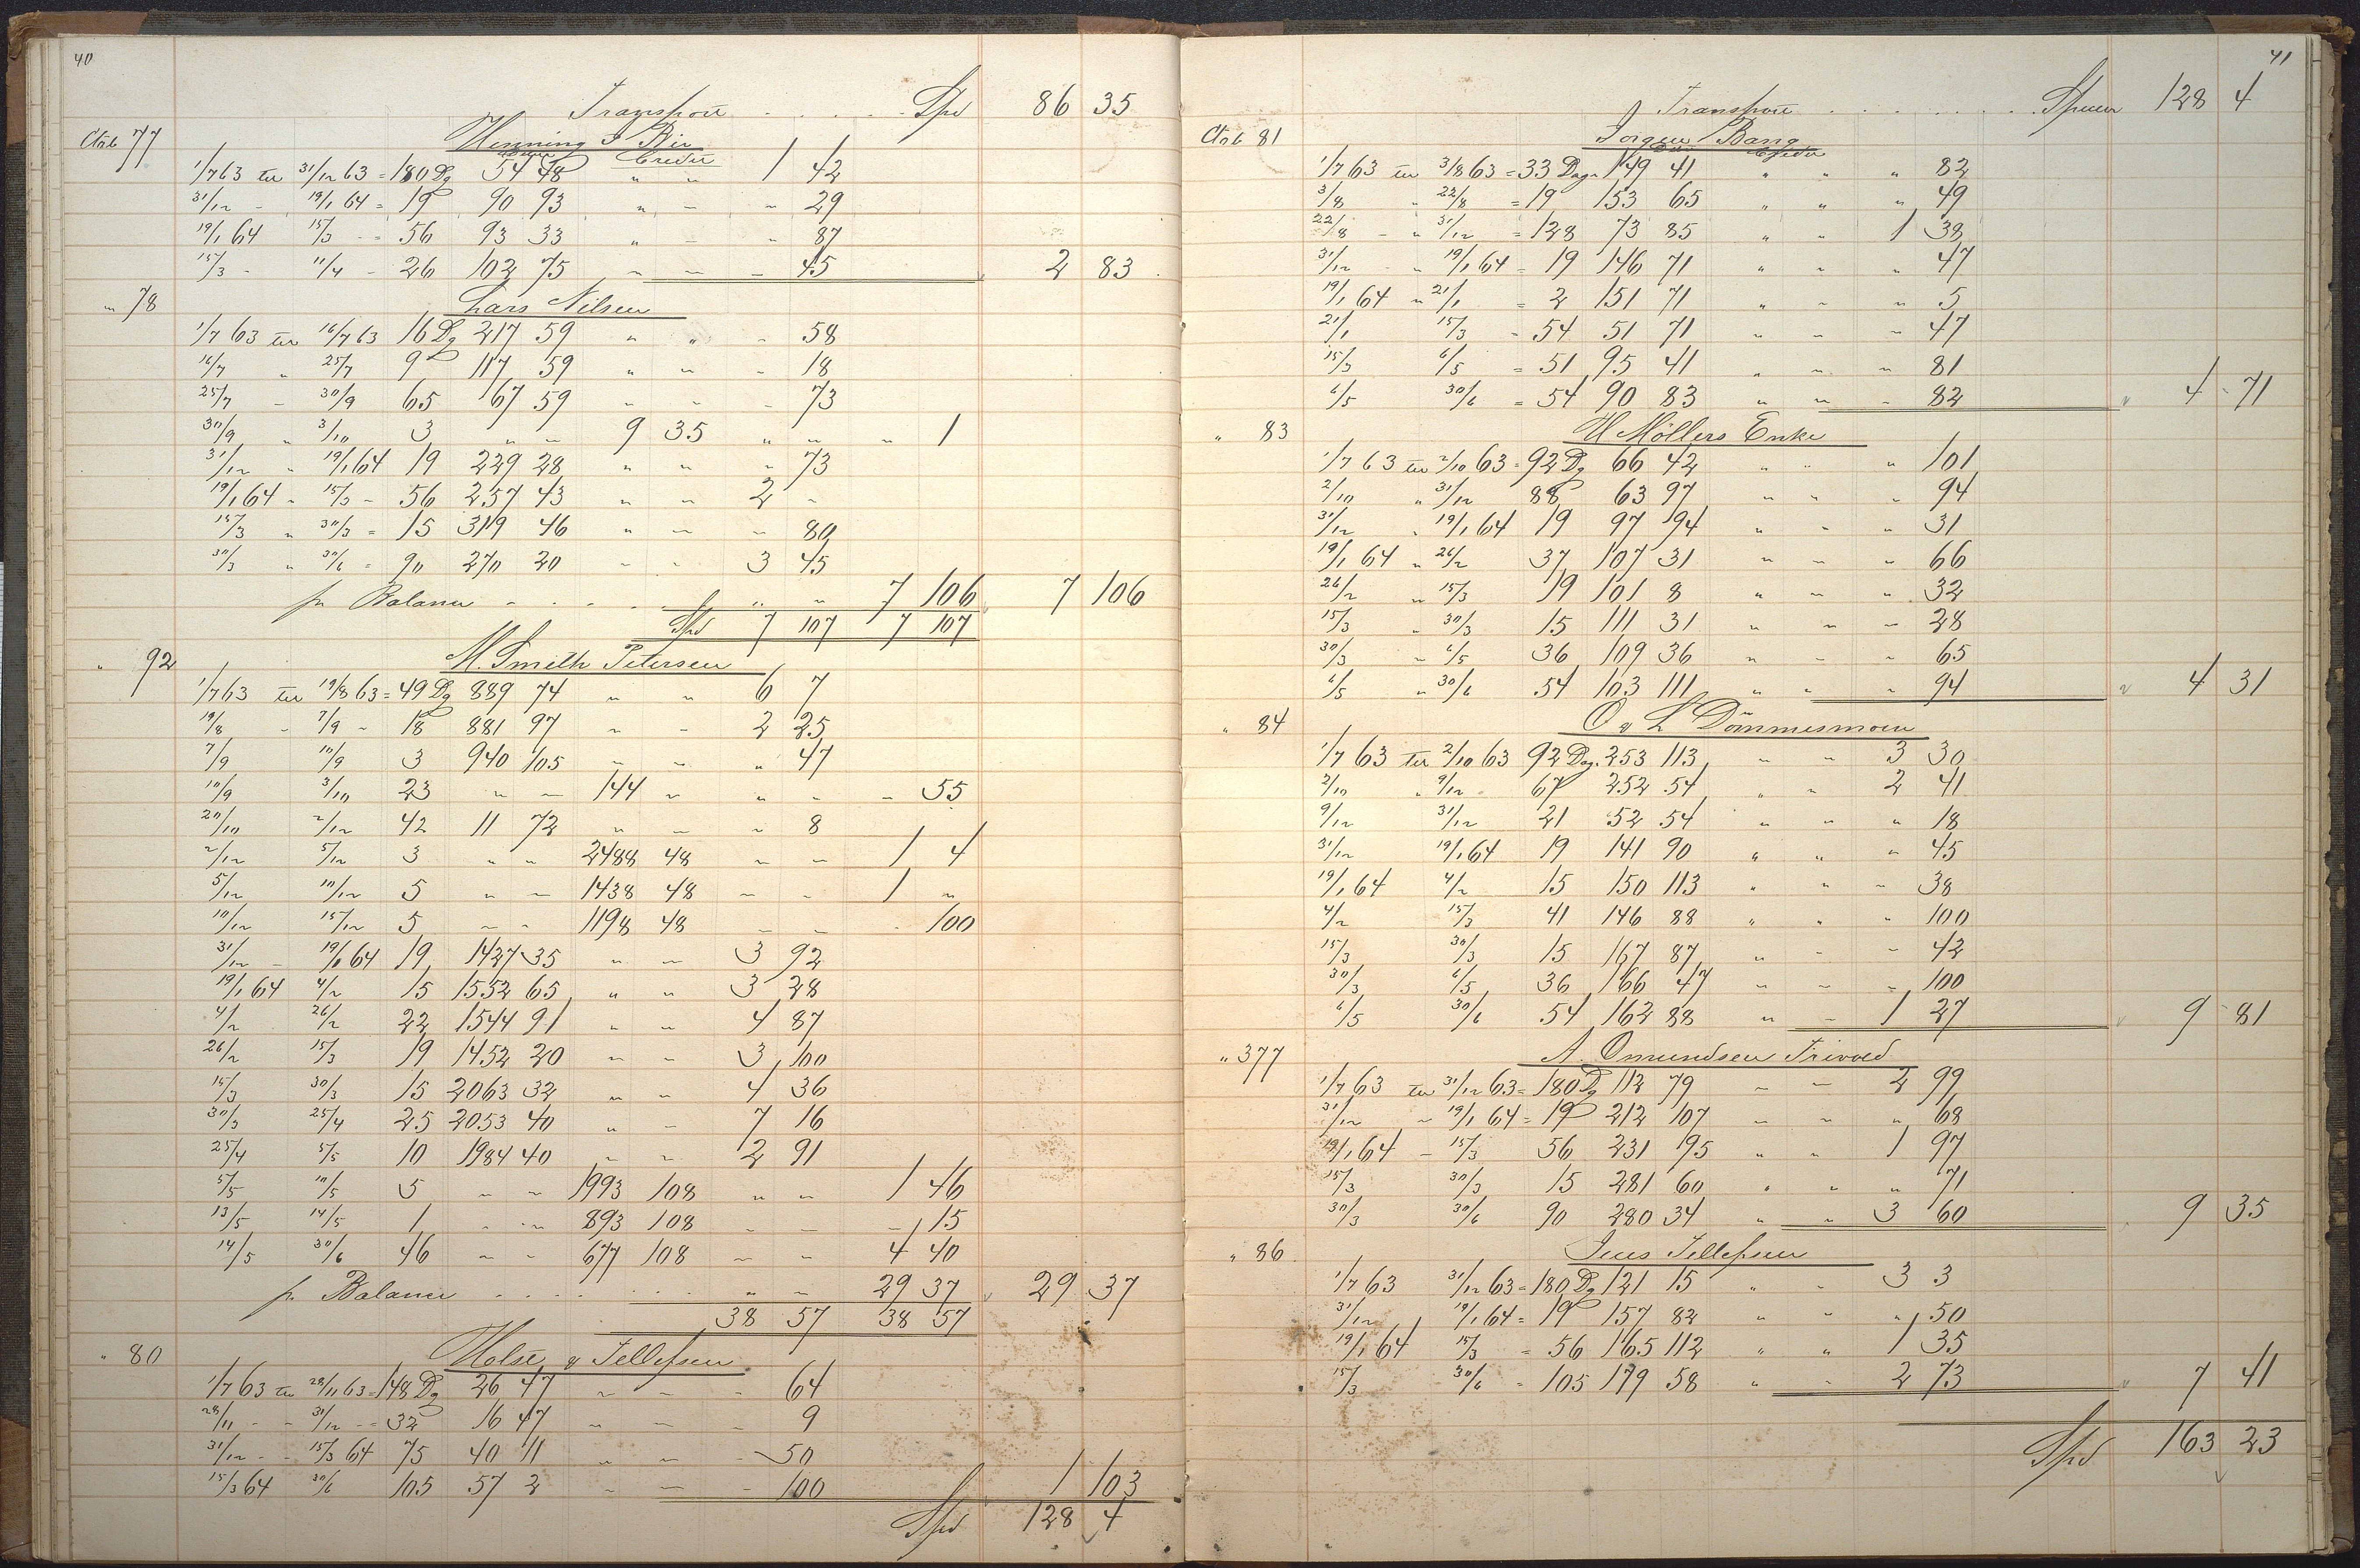 40
Transport . . . . . Spd 86 35
Ctrb 77 Henning J Bie
Debet Credit
1/7 63 til 31/12 63 = 180 Dg 54 48 " " 1 42
31/12 - 19/1 64 = 19 90 93 " - " 29
19/1 64 15/3 - = 56 93 33 " - " 87
15/3 - 11/4 - 26 102 75 - - - 45 2 83
" 78 Lars Nilsen
1/7 63 til 16/7 63 16 Dg 217 59 " " - 58
16/7 " 25/7 9 117 59 " - - 18
25/7 - 30/9 65 167 59 - - - 73
30/9 " 3/10 3 " - 9 35 " " " 1
31/12 " 19/1 64 19 229 28 " " " 73
19/1 64 - 15/3 - 56 257 43 " - 2 -
15/3 " 30/3 = 15 319 46 " - - 80
30/3 " 30/6 = 90 270 20 - - 3 45
pr Balance - . . . . " - 7 106 7 106
Spd 7 107 7 107
" 92 M. Smith Petersen
1/7 63 til 19/8 63 = 49 Dg 889 74 " " 6 7
19/8 - 7/9 - 18 881 97 - - 2 25
7/9 10/9 3 940 105 - - " 47
10/9 3/10 23 " - 144 - " - - 55
20/10 2/12 42 11 72 - - - 8
2/12 5/12 3 " " 2488 48 - - 1 4
5/12 10/12 5 " - 1438 48 - - 1 "
10/12 15/12 5 - - 1198 48 - - - 100
31/12 - 19/1 64 19 1427 35 " - 3 92
19/1 64 4/2 15 1552 65 " " 3 28
4/2 26/2 22 1544 91 " - 4 87
26/2 15/3 19 1452 20 - - 3 100
15/3 30/3 15 2063 32 " - 4 36
30/3 25/4 25 2053 40 " - 7 16
25/4 5/5 10 1984 40 - - 2 91
5/5 10/5 5 - - 1993 108 " - 1 46
13/5 14/5 1 - - 893 108 - - - 15
14/5 30/6 46 - - 677 108 - - 4 40
pr. Balance . . . . . . " - 29 37 29 37
38 57 38 57
" 80 Holst & Tellefsen
1/7 63 til 28/11 63 = 148 Dg 26 47 - - - 64
28/11 - - 31/12 - = 32 16 47 - - - 9
31/12 - - 15/3 64 75 40 11 " - - 50
15/3 64 30/6 105 57 2 - - - 100 1 103
Spd 128 4
41
Transport . . . . . . . Spd 128 4
Ctrb 81 Jørgen Bang
Debet Credit
1/7 63 til 3/8 63 = 33 Dage 149 41 " " " 82
3/8 " 22/8 = 19 153 65 " " " 49
22/8 - " 31/12 = 128 73 85 " " 1 38
31/12 - " 19/1 64 = 19 146 71 " - " 47
19/1 64 " 21/1 = 2 151 71 " - " 5
21/1 15/3 - 54 51 71 - - - 47
15/3 6/5 = 51 95 41 " - - 81
6/5 30/6 = 54 90 83 " " - 82 4 - 71
" 83 H Møllers Enke
1/7 63 til 2/10 63 = 92 Dg 66 42 " " " 101
2/10 " 31/12 88 63 97 - - " 94
31/12 " 19/1 64 19 97 94 " - " 31
19/1 64 " 26/2 37 107 31 " - " 66
26/2 " 15/3 19 101 8 " - " 32
15/3 " 30/3 15 111 31 " " - 28
30/3 - 6/5 36 109 36 " - - 65
6/5 " 30/6 54 103 111 " " " 94 4 31
" 84 O & L Dømmesmoen
1/7 63 til 2/10 63 92 Dag. 253 113 - - 3 30
2/10 " 9/12 67 252 54 " " 2 41
9/12 31/12 21 52 54 " " " 18
31/12 19/1 64 19 141 90 " " - 45
19/1 64 4/2 15 150 113 " " - 38
4/2 15/3 41 146 88 " " " 100
15/3 30/3 15 167 87 " - - 42
30/3 6/5 36 166 47 - - - 100
6/5 30/6 54 162 88 " - 1 27 9 - 81
" 377 A. Omundsen Trivold
1/7 63 til 31/12 63 = 180 Dg 112 79 - - 2 99
31/12 - 19/1 64 = 19 212 107 - - " 68
19/1 64 - 15/3 56 231 95 " " 1 97
15/3 30/3 15 281 60 " " " 71
30/3 30/6 90 280 34 " " 3 60 9 35
" 86 Jens Tellefsen
1/7 63 31/12 63 = 180 Dg 121 15 " - 3 3
31/12 19/1 64 = 19 157 82 " " " 50
19/1 64 15/3 = 56 165 112 " " 1 35
15/3 30/6 - 105 179 58 " - 2 73 7 41
Spd 163 23